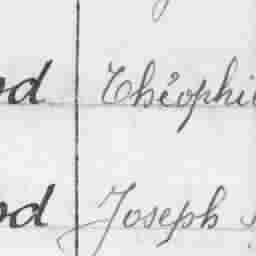 od Théophi
od Joseph